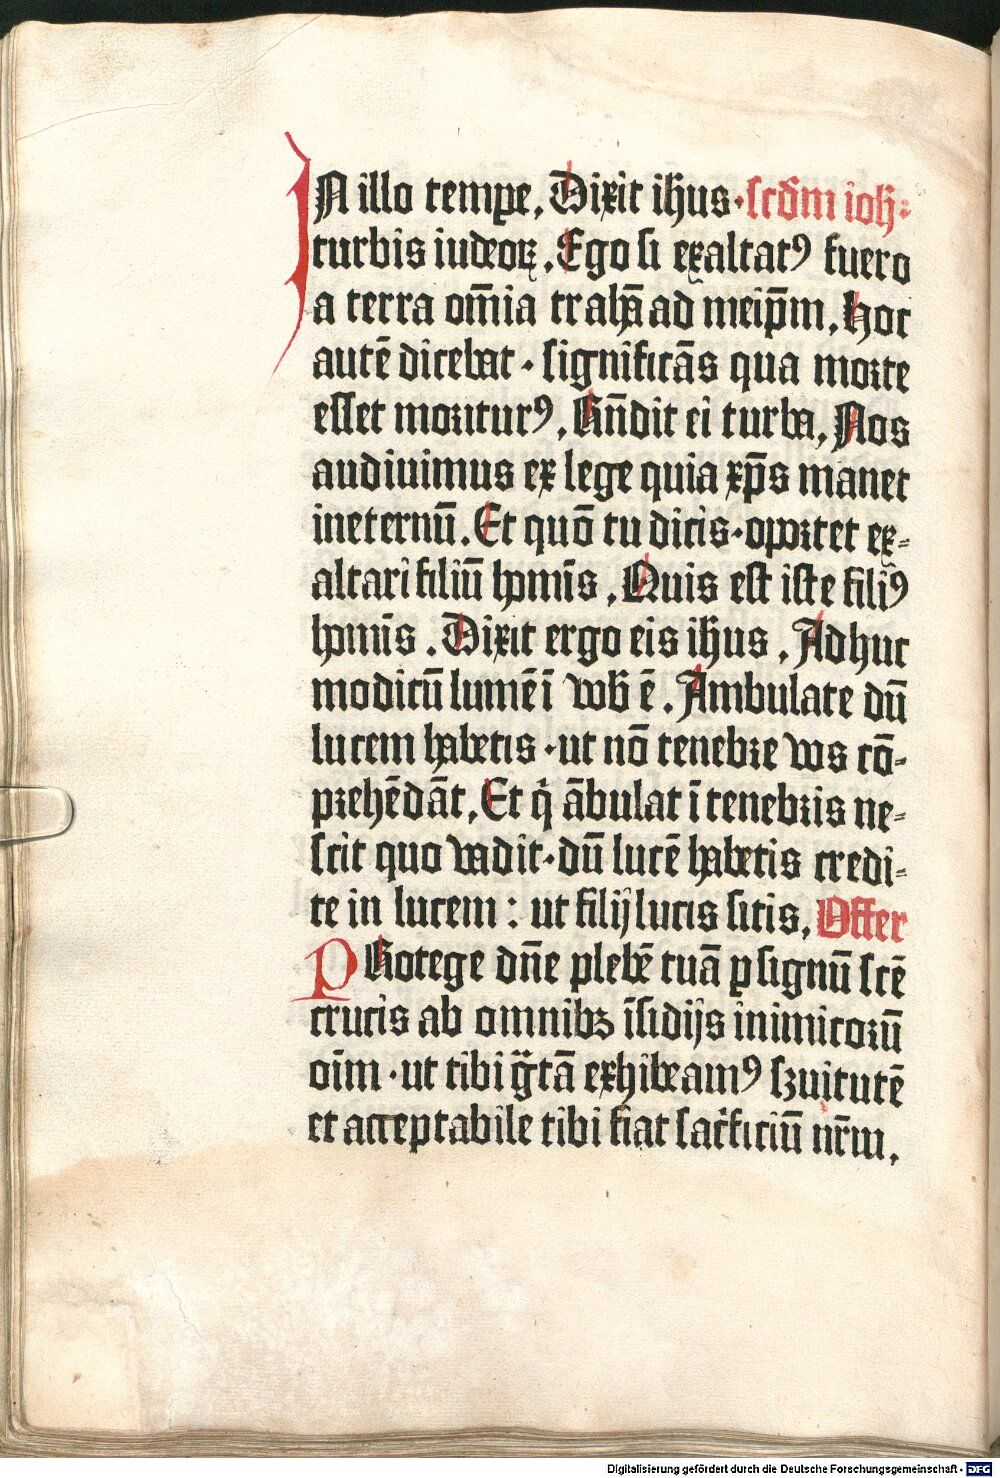 IN illo tempꝑe, Dixit ih̄us · scd̄m ioh̄:
turbis iudeoꝝ. Ego si exaltatꝰ fuero
a terra om̄ia trahā ad meip̄m, Hoc
autē dicebat · significās qua morte
esset moriturꝰ, Rn̄dit ei turba, Nos
audiuimus ex lege quia xp̄s manet
ineternū. Et quō tu dicis · oportet ex-
altari filiū homīs, Quis est iste filiꝰ
homīs. Dixit ergo eis ih̄us, Adhuc
modicū lumē ī vob̄ ē. Ambulate dū
lucem habetis · ut nō tenebre vos cō-
prehēdāt, Et q̄ ābulat ī tenebris ne-
scit quo vadit · dū lucē habetis credi-
te in lucem : ut filij lucis sitis, Offer
PRotege dn̄e plebē tuā ꝑ signū scē
crucis ab omnibꝫ īsidijs inimicorū
oīm · ut tibi gͣtā exhibeamꝰ sꝫuitutē
et acceptabile tibi fiat sacͥficiū nr̄m,
Digitalisierung gefördert durch die Deutsche Forschungsgemeinschaft - DFG